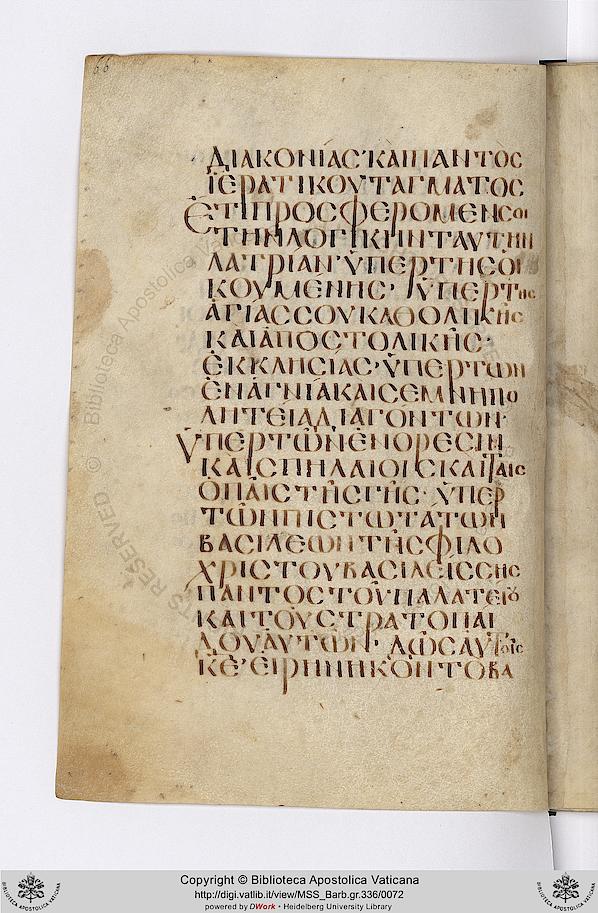 66
ΔΙΑΚΟΝΙΑΣ ΚΑΙ ΠΑΝΤΟΣ
ΙΕΡΑΤΙΚΟΥ ΤΑΓΜΑΤΟΣ
ΕΤΙ ΠΡΟΣΦΕΡΟΜΕΝ ΣΟΙ
ΤΗΝ ΛΟΓΙΚΗΝ ΤΑΥΤΗΝ
ΛΑΤΡΙΑΝ ΥΠΕΡ ΤΗΣ ΟΙ
ΚΟΥΜΕΝΗΣ· ΥΠΕΡ ΤΗΣ
ΑΓΙΑΣ ΣΟΥ ΚΑΘΟΛΙΚΗΣ
ΚΑΙ ΑΠΟΣΤΟΛΙΚΗΣ·
ΕΚΚΛΗΣΙΑΣ· ΥΠΕΡ ΤΩΝ
ΕΝ ΑΓΝΙΑ ΚΑΙ ΣΕΜΝΗ ΠΟ
ΛΗΤΕΙΑ ΔΙΑΓΟΝΤΩΝ·
ΥΠΕΡ ΤΩΝ ΕΝ ΟΡΕΣΙΝ
ΚΑΙ ΣΠΗΛΑΙΟΙΣ ΚΑΙ ΤΑΙΣ
ΟΠΑΙΣ ΤΗΣ ΓΗΣ· ΥΠΕΡ
ΤΩΝ ΠΙΣΤΩΤΑΤΩΝ
ΒΑΣΙΛΕΩΝ ΤΗΣ ΦΙΛΟ
ΧΡΙΣΤΟΥ ΒΑΣΙΛΕΙΣΣΗΣ
ΠΑΝΤΟΣ ΤΟΥ ΠΑΛΑΤΕΙΟΥ
ΚΑΙ ΤΟΥ ΣΤΡΑΤΟΠΑΙ
ΔΟΥ ΑΥΤΩΝ· ΔΩΣ ΑΥΤΟΙΣ
ΚΕ ΕΙΡΗΝΗΚΟΝ ΤΟ ΒΑ
Copyright © Biblioteca Apostolica Vaticana
http://digi.vatlib.it/view/MSS_Barb.gr.336/0072
powered by DWork • Heidelberg University Library